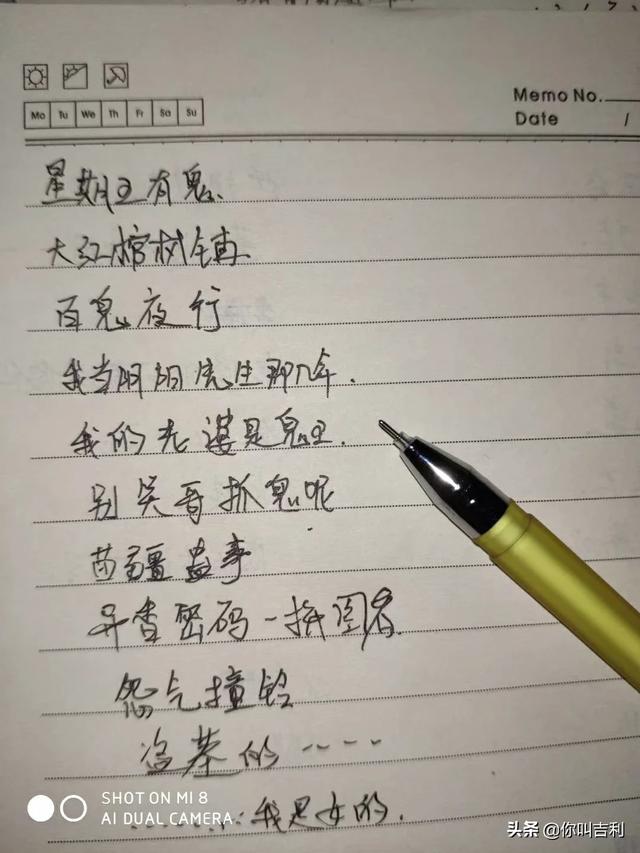 Memo No.
Mo Tu We Th Fr Sa Su
Date /
星期五有鬼、
大红棺树镇
百鬼夜行
我当阴阳先生那几年.
我的老婆是鬼王.
别 抓鬼呢
苗疆蛊事
密码一拼图者.
怨气撞铃
盗墓的....
......我是女的.
SHOT ON MI 8
AI DUAL CAMERA
头条 @你叫吉利